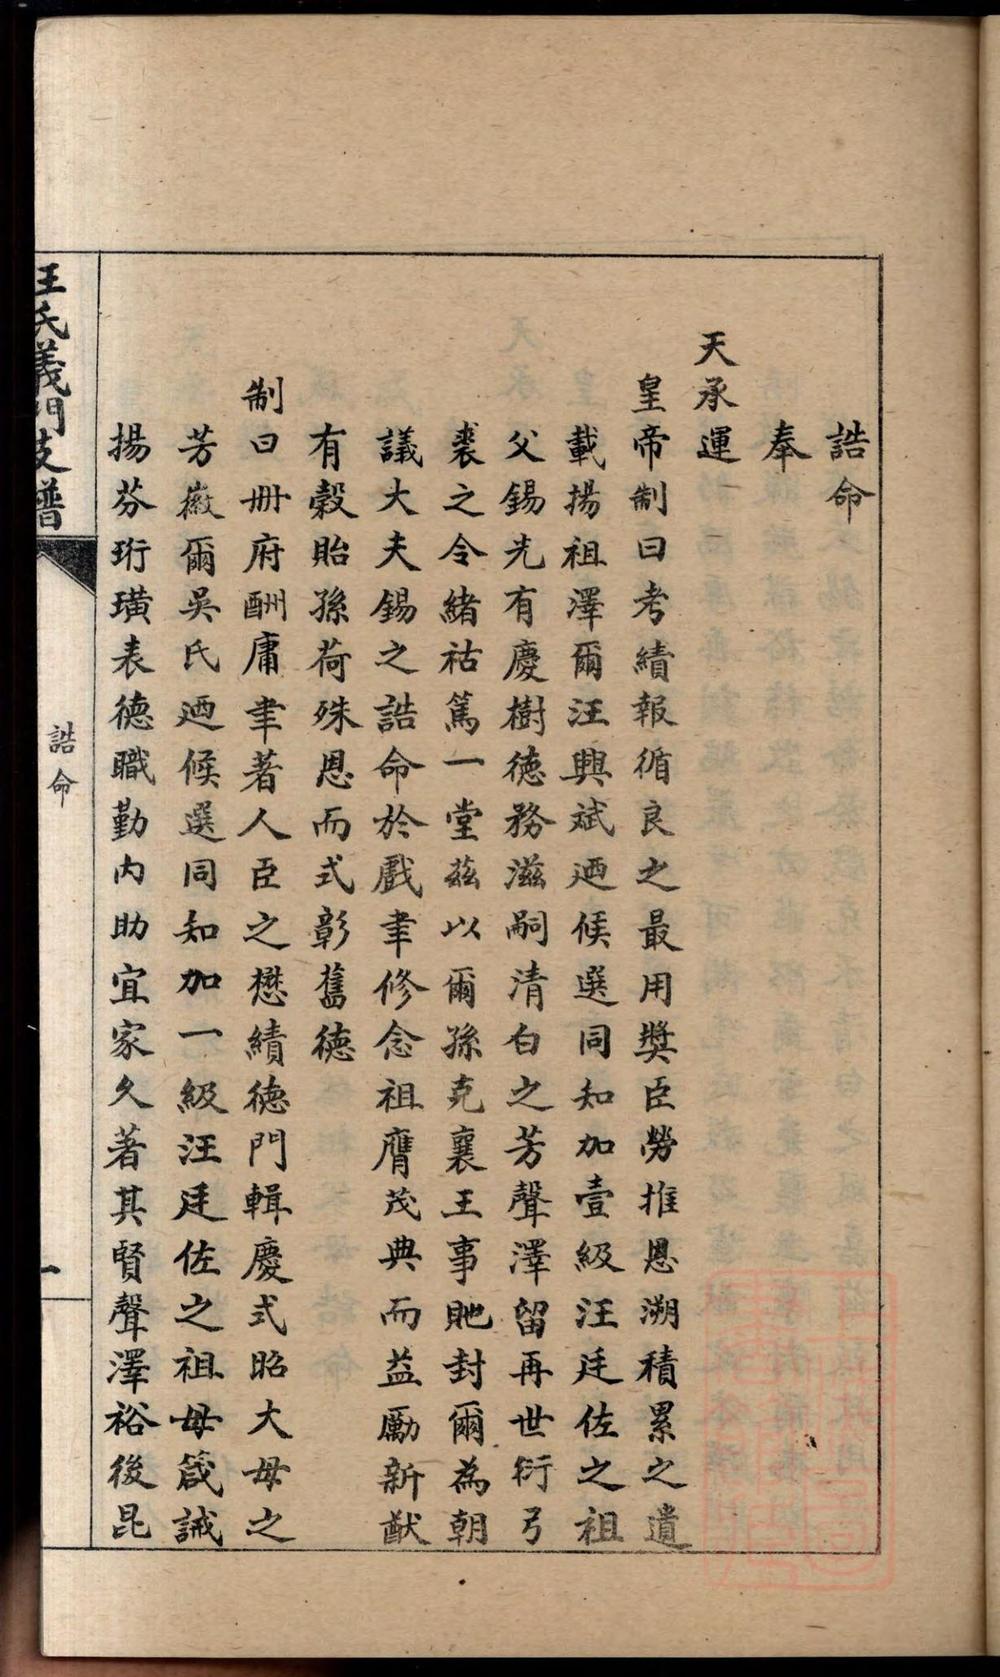 誥命
奉
天承運
皇帝制曰考績報循良之最用奬臣勞推恩溯積累之遺
載揚祖澤爾汪興斌廼候選同知加壹級汪廷佐之祖
父錫光有慶樹德務滋嗣清白之芳聲澤留再世衍弓
裘之令緒祜篤一堂茲以爾孫克襄王事貤封爾為朝
議大夫錫之誥命於戲聿修念祖膺茂典而益勵新猷
有穀貽孫荷殊恩而式彰舊德
制曰冊府酬庸聿著人臣之懋績德門輯慶式昭大母之
芳徽爾吳氏廼候選同知加一級汪廷佐之祖母箴誡
揚芬珩璜表德職勤內助宜家久著其賢聲澤裕後昆
汪氏義門支譜
誥命
一